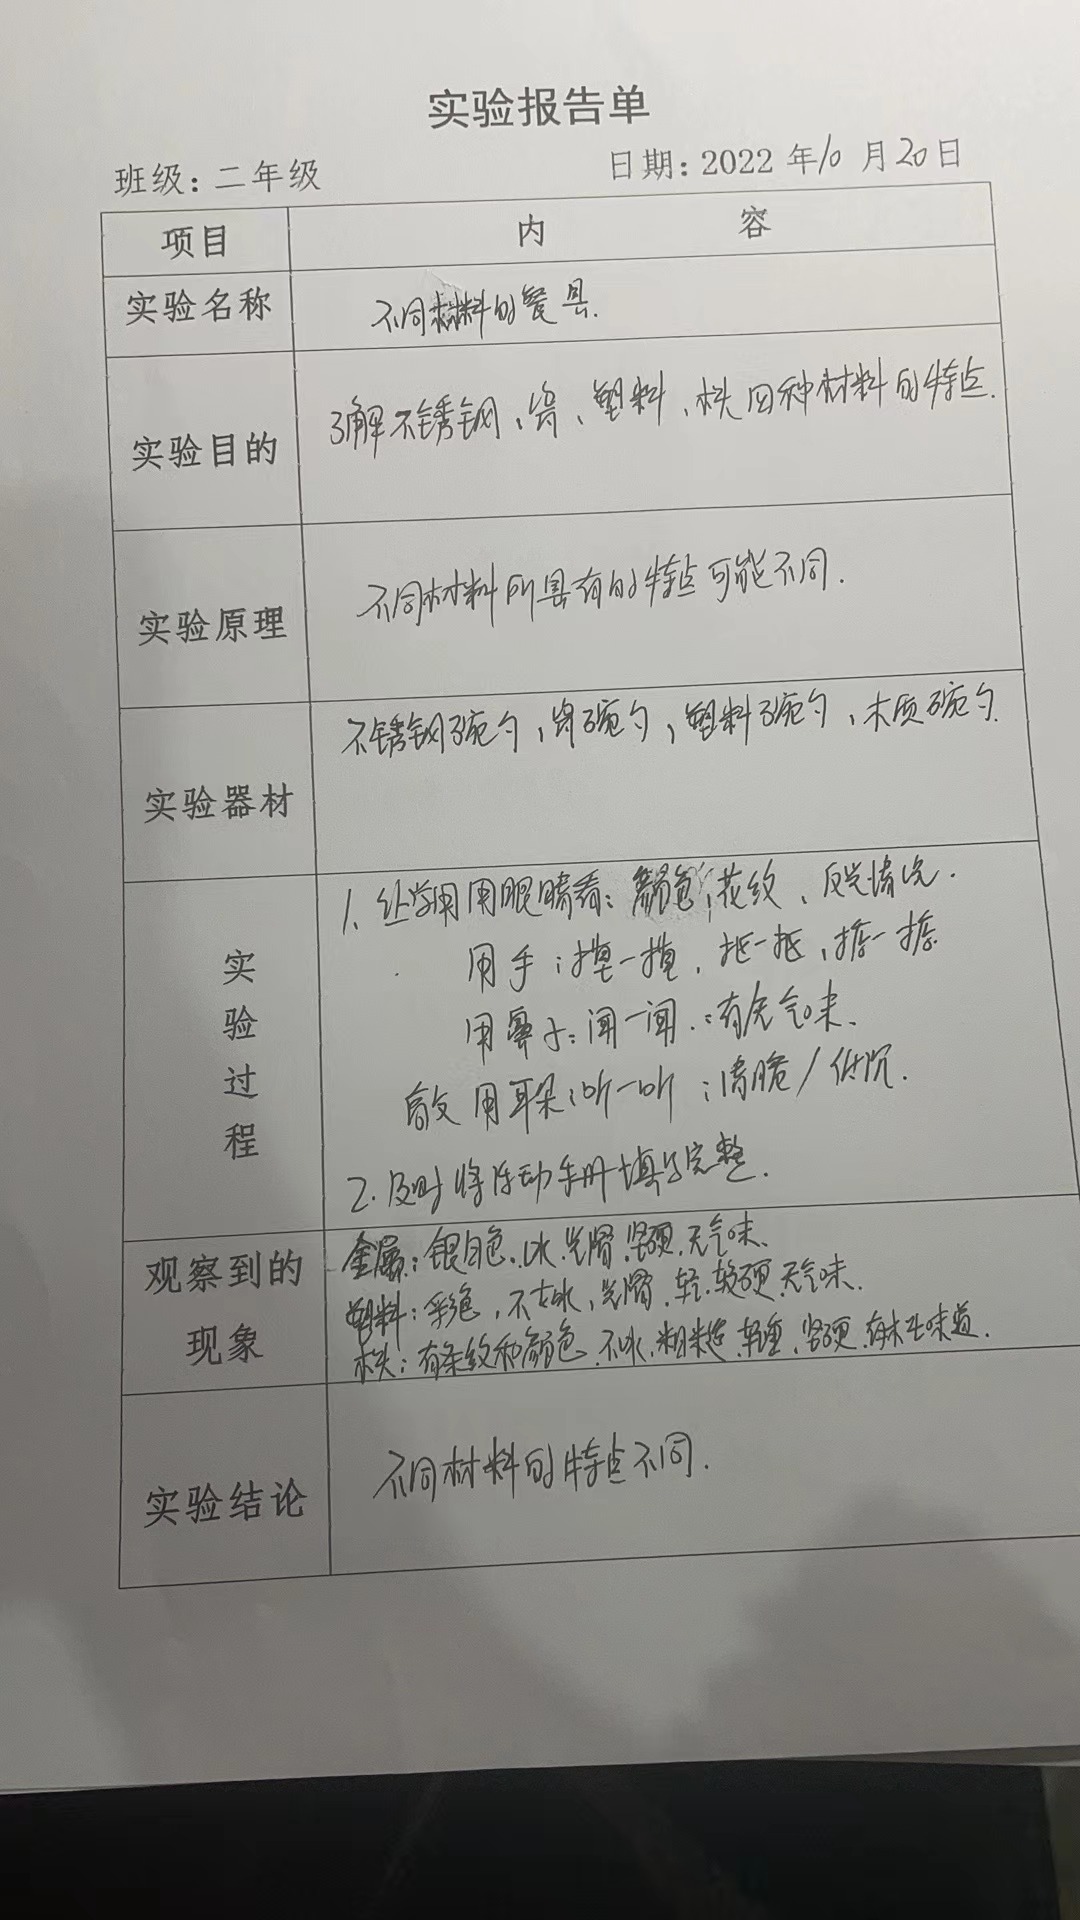 实验报告单
班级：二年级 日期：2022年10月20日
项目 内 容
实验名称 不同材料的餐具.
实验目的 了解不锈钢、瓷、塑料、木头四种材料的特点.
实验原理 不同材料所具有的特点可能不同.
实验器材 不锈钢碗勺,瓷碗勺,塑料碗勺,木质碗勺.
实验过程
1. 让学生用眼睛看：颜色,花纹、反光情况.
用手：摸一摸,
用鼻子：闻一闻.：有无气味.
敲 用耳朵：听一听；清脆/低沉.
2. 及时将活动手册填写完整.
观察到的现象
金属：银白色.冰.光滑.坚硬.无气味.
塑料：彩色,不太冰,光滑.轻.较硬.无气味.
木头：有条纹和颜色.不冰.粗糙.较重.坚硬.有木头味道.
实验结论 不同材料的特点不同.